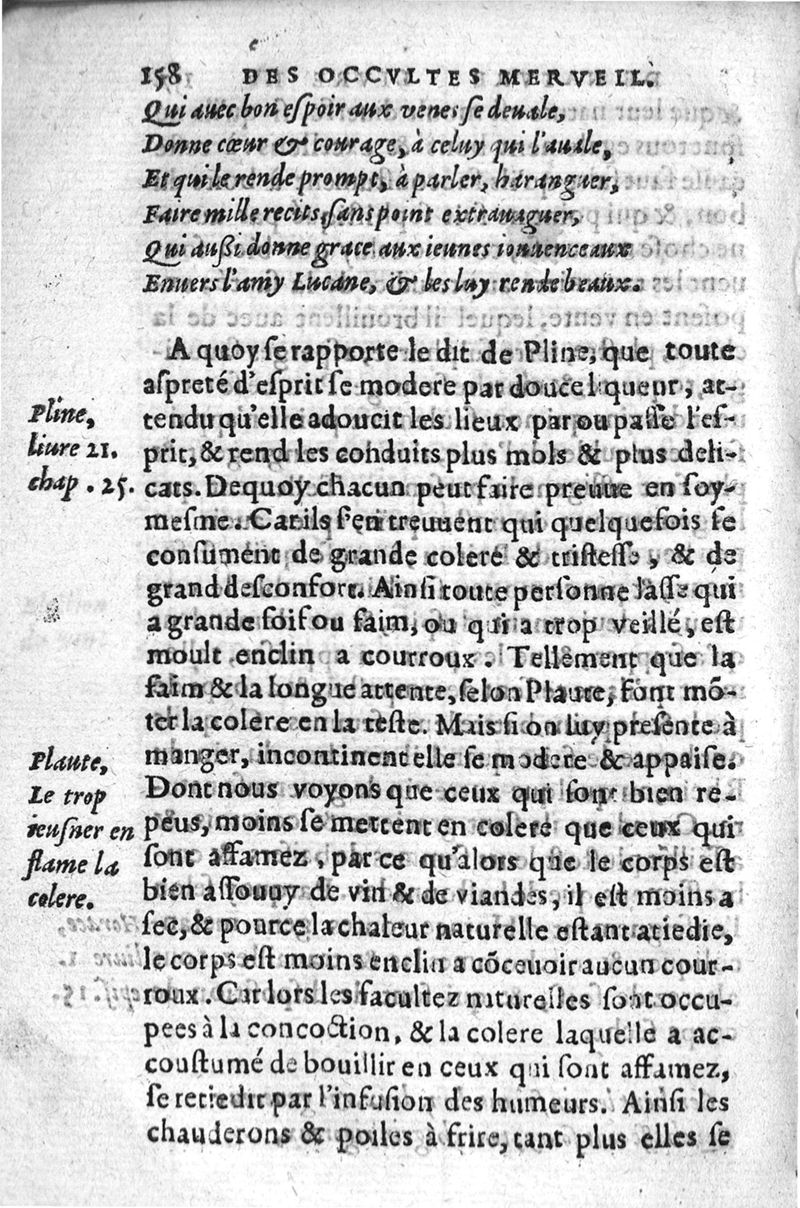 158 DES OCCVLTES MERVEIL.
Qui auec bon espoir aux venes se deuale,
Donne cœur & courage, à celuy qui l'auale,
Et qui le rende prompt, à parler, haranguer,
Faire mille recits, sans point extrauaguer,
Qui aussi donne grace aux ieunes iouuenceaux
Enuers l'amy Lucane, & les luy rende beaux.
A quoy se rapporte le dit de Pline, que toute
aspreté d'esprit se modere par douce liqueur, at-
tendu qu'elle adoucit les lieux par ou passe l'es-
prit, & rend les conduits plus mols & plus deli-
cats. Dequoy chacun peut faire preuue en soy-
mesme. Car ils s'en treuuent qui quelquefois se
consument de grande colere & tristesse, & de
grand desconfort. Ainsi toute personne lasse qui
a grande soif ou faim, ou qui a trop veillé, est
moult enclin a courroux. Tellement que la
faim & la longue attente, selon Plaute, font mõ-
ter la colere en la teste. Mais si on luy presente à
manger, incontinent elle se modere & appaise.
Dont nous voyons que ceux qui sont bien re-
peus, moins se mettent en colere que ceux qui
sont affamez, par ce qu'alors que le corps est
bien assouuy de vin & de viandes, il est moins a
sec, & pource la chaleur naturelle estant atiedie,
le corps est moins enclin a cõceuoir aucun cour-
roux. Car lors les facultez naturelles sont occu-
pees à la concoction, & la colere laquelle a ac-
coustumé de bouillir en ceux qui sont affamez,
se retiedit par l'infusion des humeurs. Ainsi les
chauderons & poiles à frire, tant plus elles se
Pline,
liure 21.
chap. 25.
Plaute,
Le trop
ieusner en
flame la
colere.